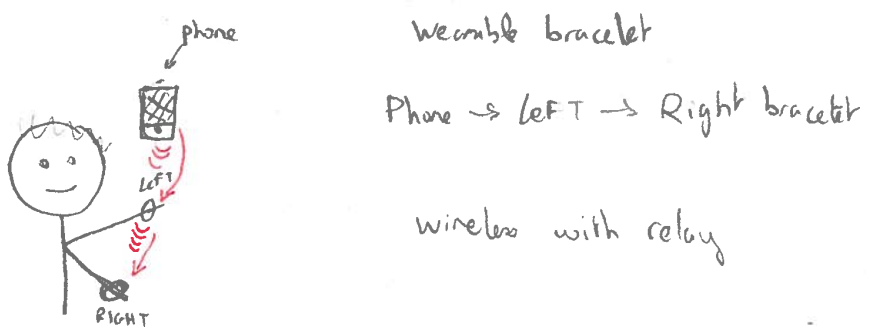 phone
Wearable bracelet
Phone → LEFT → Right bracelet
LEFT
wireless with relay
RIGHT